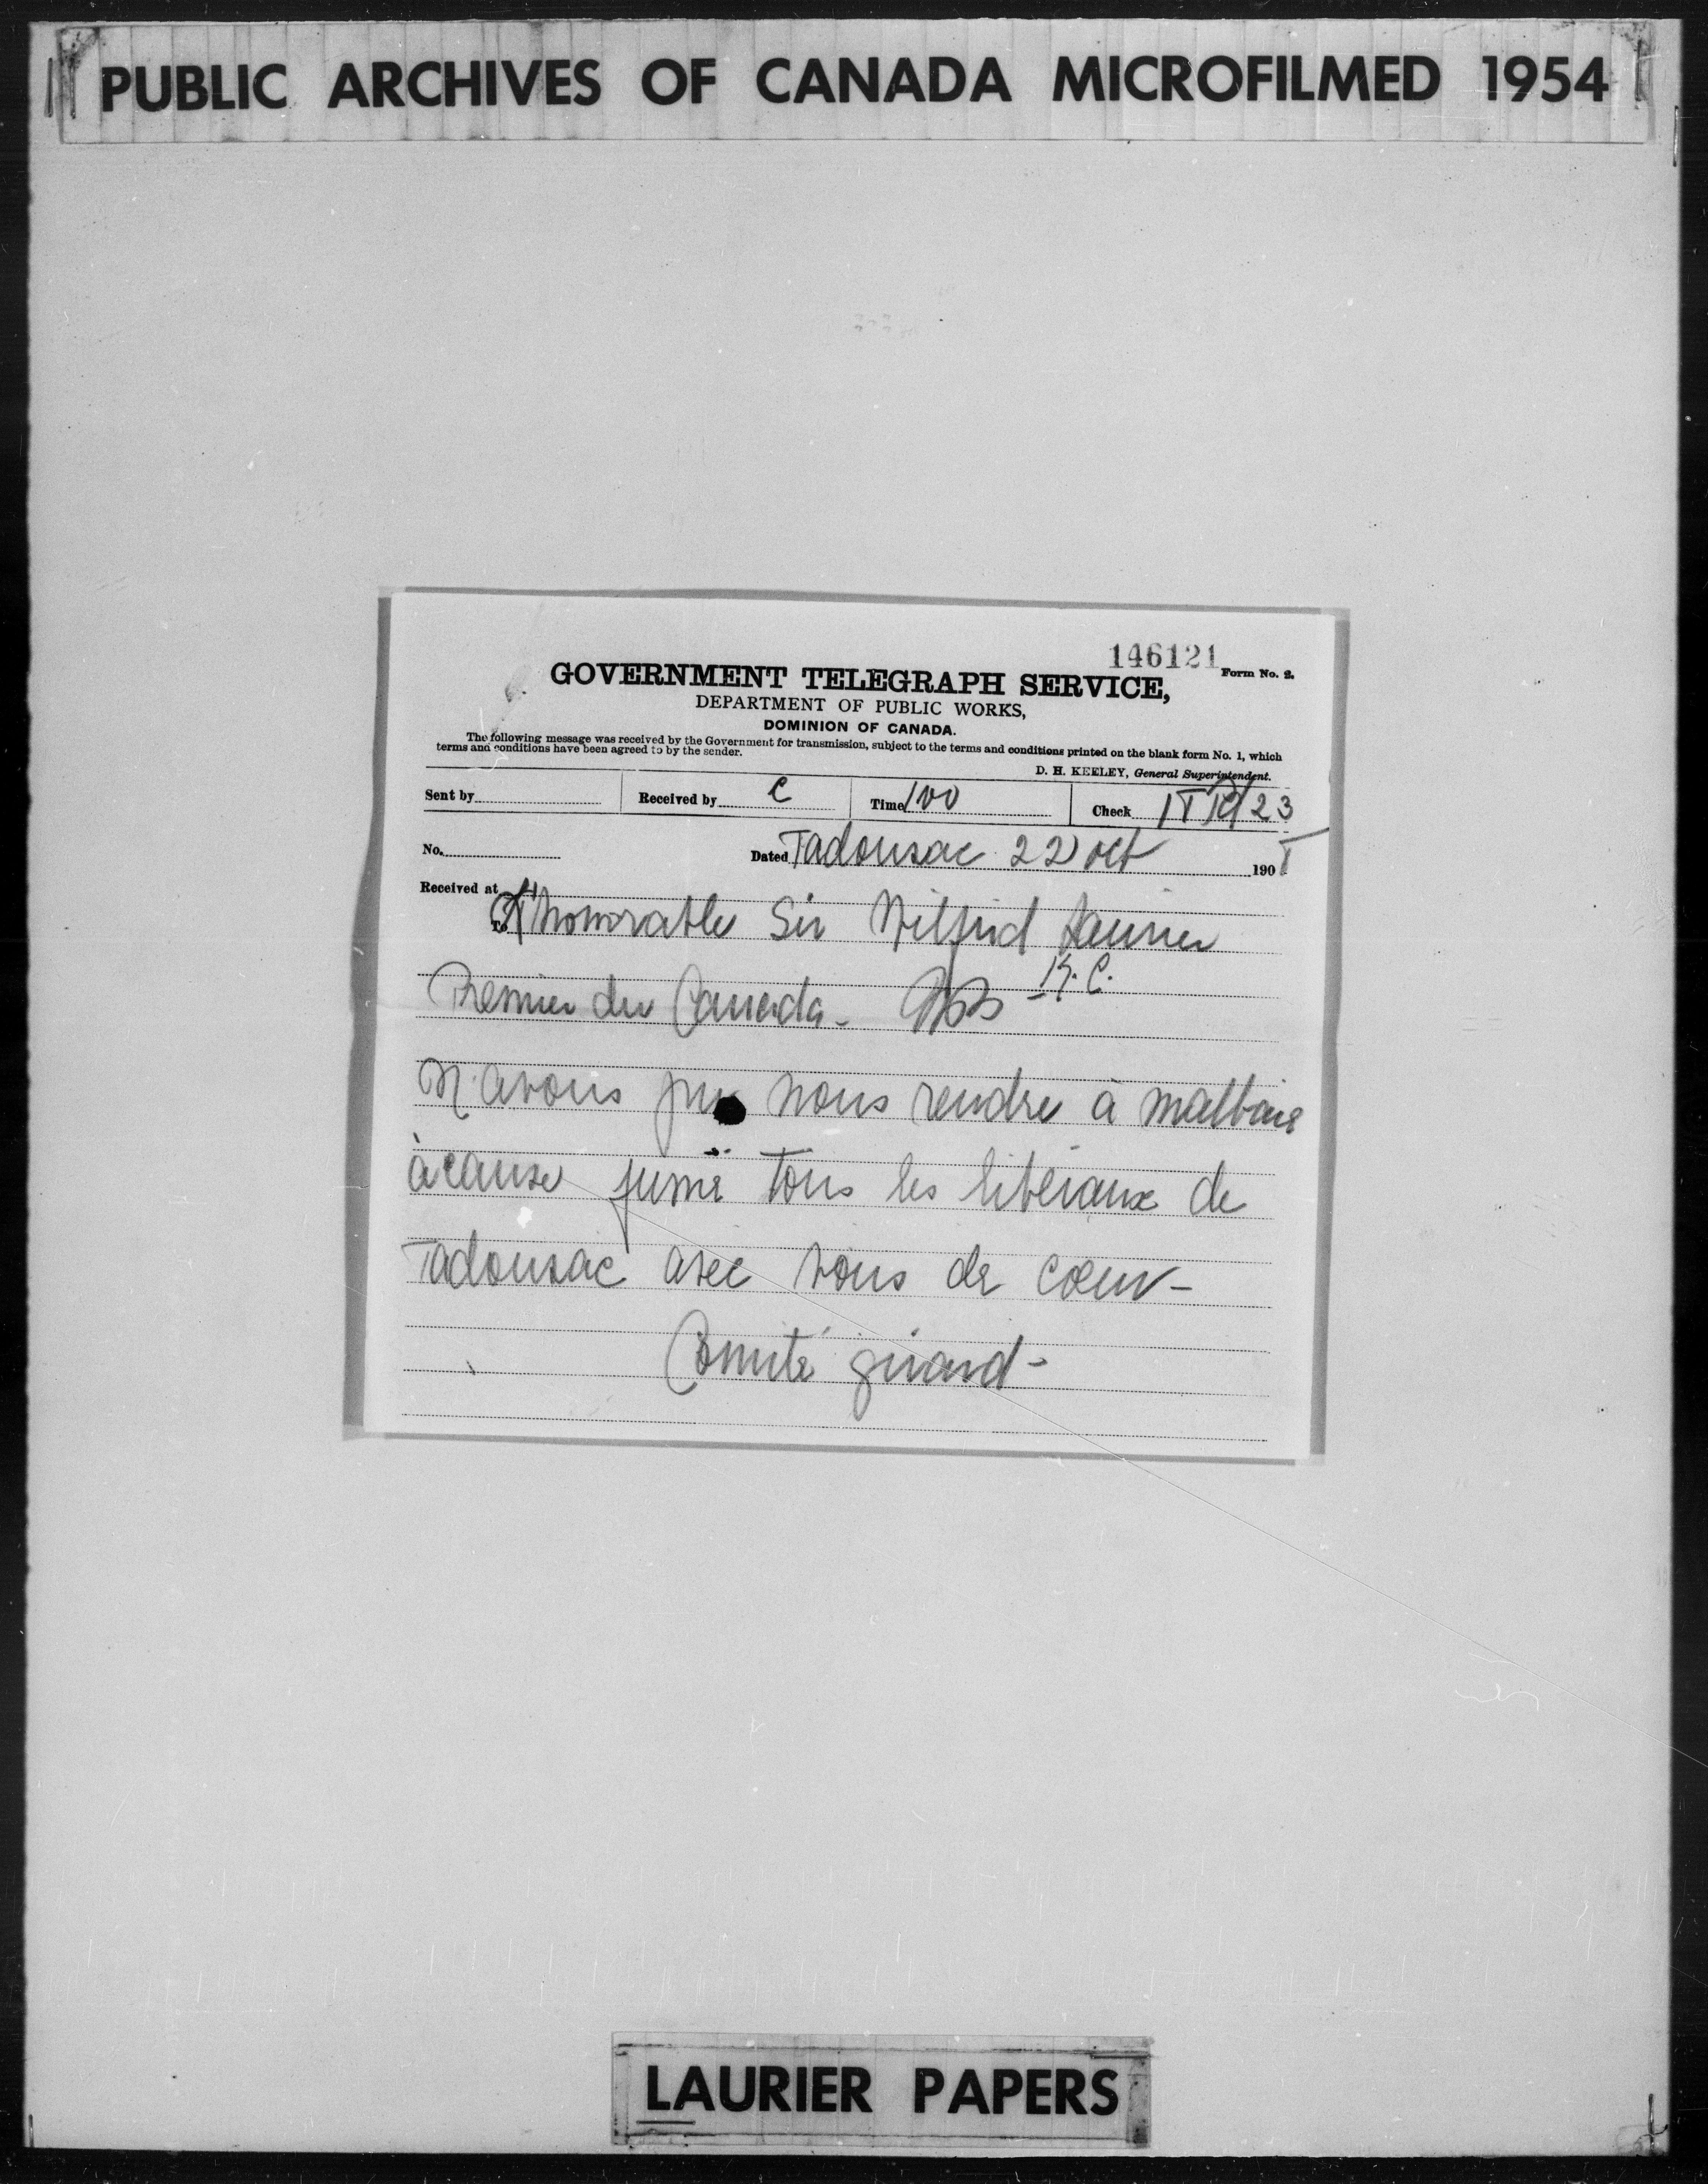 PUBLIC ARCHIVES OF CANADA MICROFILMED 1954
146121
Form No. 2.
GOVERNMENT TELEGRAPH SERVICE,
DEPARTMENT OF PUBLIC WORKS,
DOMINION OF CANADA.
The following message was received by the Government for transmission, subject to the terms and conditions printed on the blank form No. 1, which
terms and conditions have been agreed to by the sender.
D. H. KEELEY, General Superintendent.
Sent by Received by C Time 100 Check 23
No. Dated Tadousac 22 oct 190
Received at
To honorable Sir Wilfrid Laurier
Premier du Canada - K.C.
N'avons pu nous rendre à malbaie
à cause fumé tous les libéraux de
Tadousac avec vous de coeur -
Comité girard -
LAURIER PAPERS